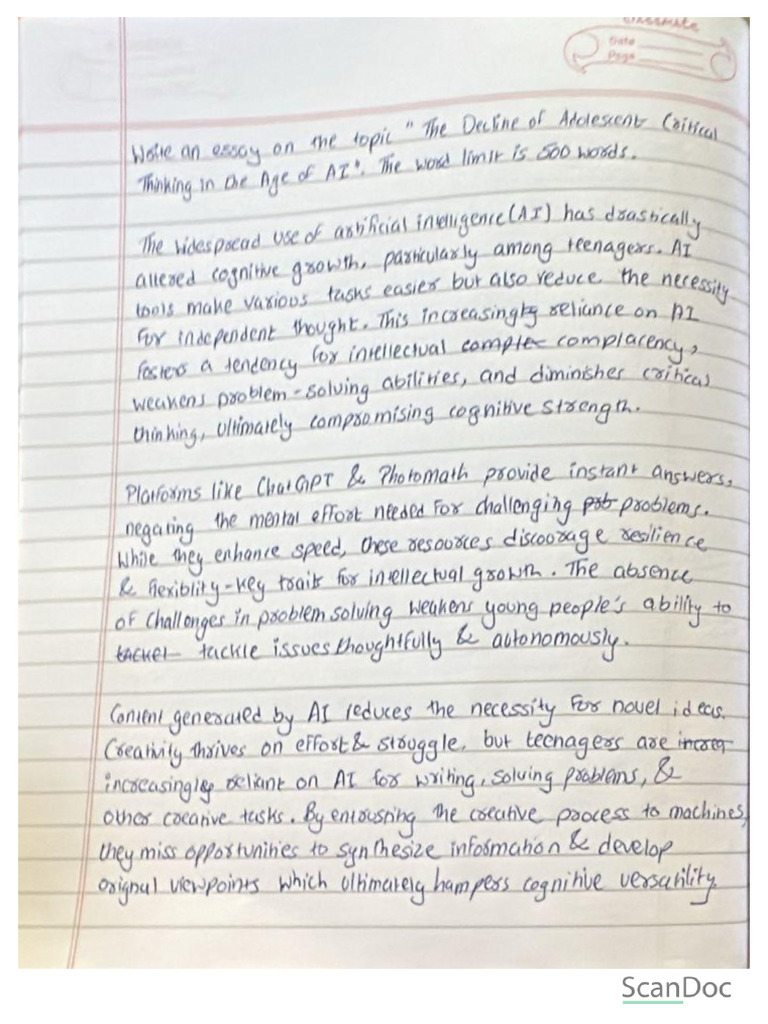 classmate
Date
Page
Write an essay on the topic "The Decline of Adolescent Critical
Thinking in the Age of AI". The word limit is 500 words.
The widespread use of artificial intelligence (AI) has drastically
altered cognitive growth, particularly among teenagers. AI
tools make various tasks easier but also reduce the necessity
for independent thought. This increasingly reliance on AI
fosters a tendency for intellectual complex complacency,
weakens problem-solving abilities, and diminishes critical
thinking, ultimately compromising cognitive strength.
Platforms like ChatGPT & Photomath provide instant answers,
negating the mental effort needed for challenging prb problems.
While they enhance speed, these resources discourage resilience
& flexiblity - key traits for intellectual growth. The absence
of challenges in problem solving weakens young people's ability to
tackel tackle issues thoughtfully & autonomously.
Content generated by AI reduces the necessity for novel ideas.
Creativity thrives on effort & struggle, but teenagers are increa
increasingly reliant on AI for writing, solving problems, &
other creative tasks. By entrusting the creative process to machines,
they miss opportunities to synthesize information & develop
orignal viewpoints which ultimately hampers cognitive versatility.
ScanDoc